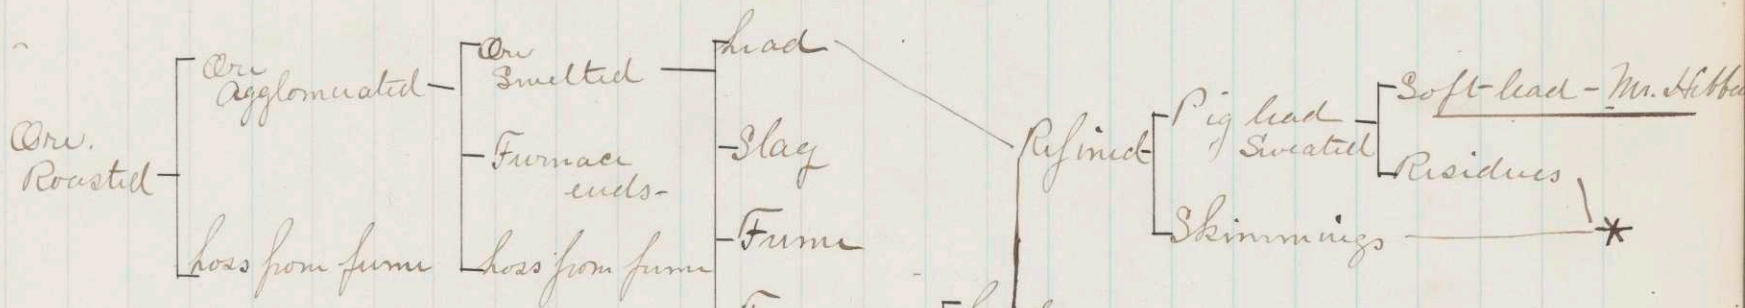 Ore.
Roasted
Ore
Agglomerated
Loss from fume
Ore
Smelted
Furnace
ends-
Loss from fume
Lead
Slag
Fume
Refined
Pig lead
Sweated
Skimmings
Soft-lead - Mr.
Residues
*